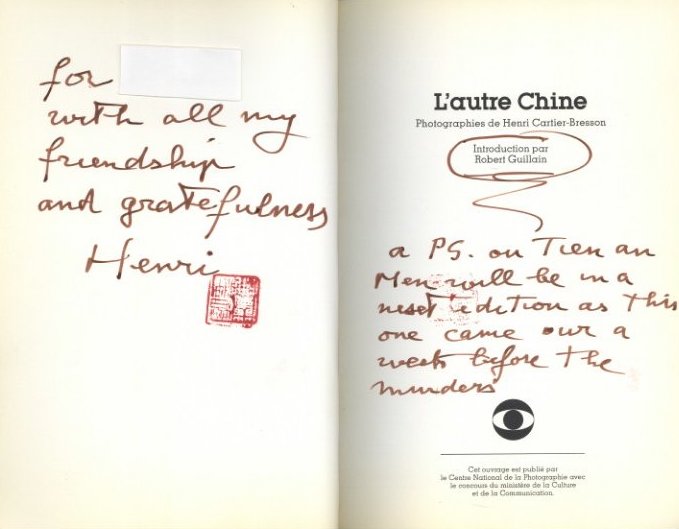 for
with all my
friendship
and gratefulness
Henri
L'autre Chine
Photographies de Henri Cartier-Bresson
Introduction par
Robert Guillain
a PS. on Tien an
Men will be in a
next edition as this
one came our a
week before the
murders
Cet ouvrage est publié par
le Centre National de la Photographie avec
le concours du ministère de la Culture
et de la Communication.